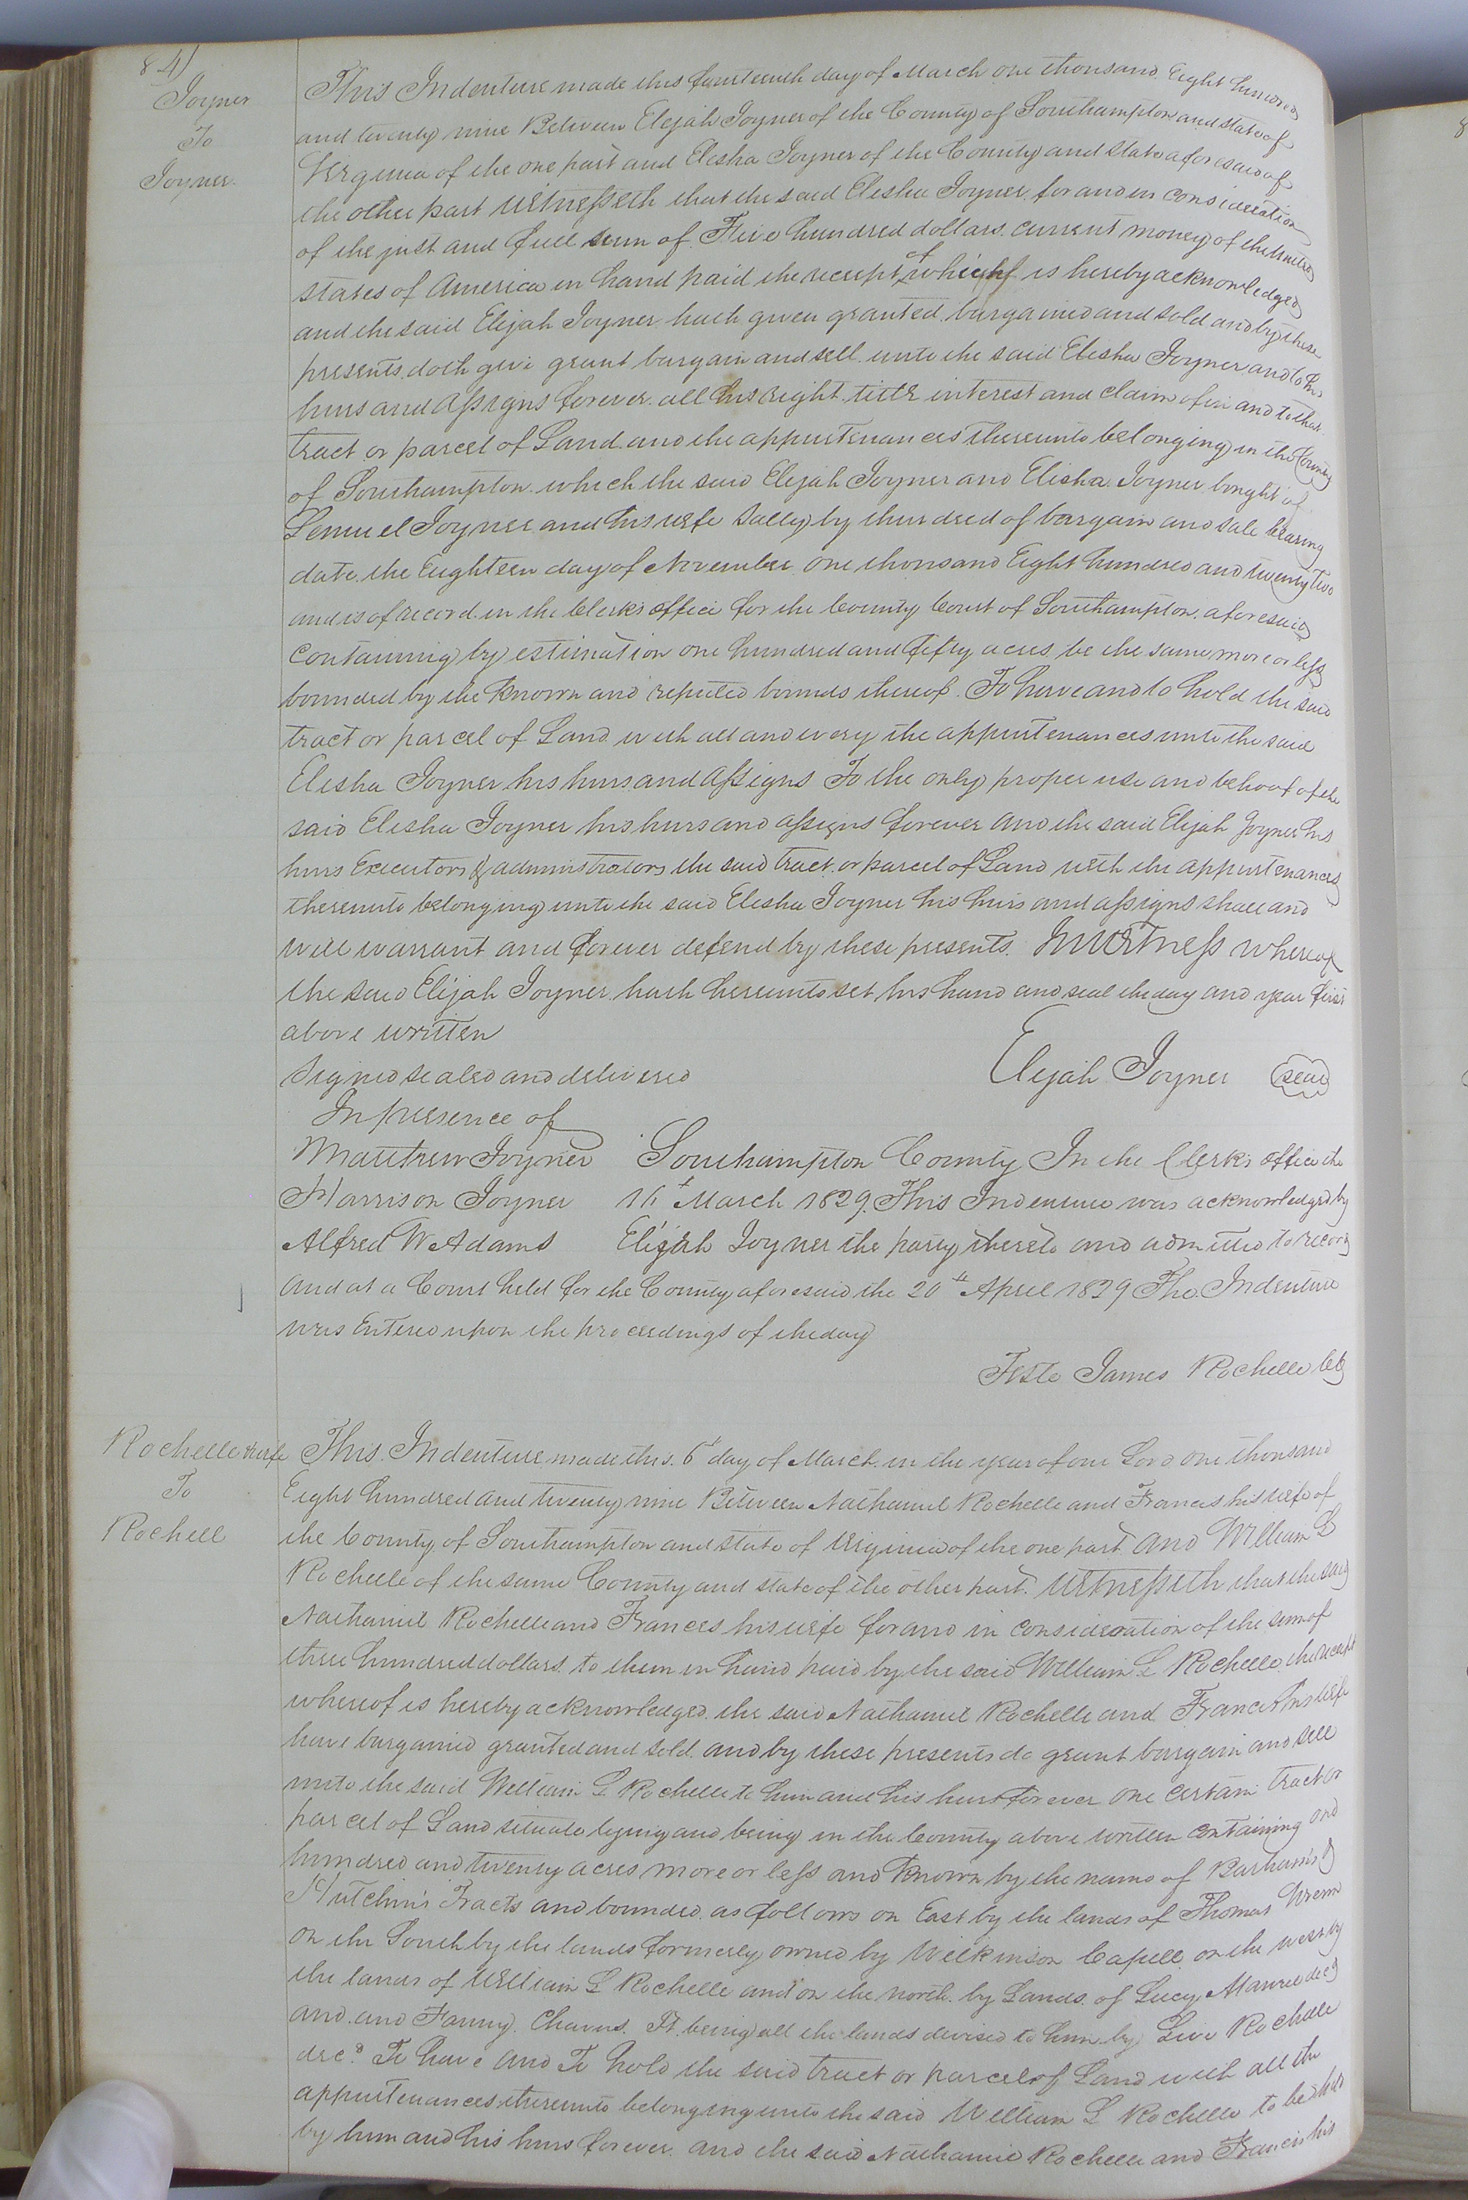 84)
Joyner
To
Joyner.
This Indenture made this fourteenth day of March one thousand Eight hundred
and twenty nine Between Elijah Joyner of the County of Southampton and state of
Virginia of the one part and Elisha Joyner of the County and state aforesaid of
the other part Witnesseth that the said Elisha Joyner for and in consideration
of the just and full sum of Five hundred dollars current money of the United
states of America in hand paid the receipt of which is hereby acknowledged
and the said Elijah Joyner hath given granted bargained and sold and by these
presents doth give grant bargain and sell unto the said Elisha Joyner and to his
heirs and assigns forever all his right title interest and claim of in and to that
tract or parcel of Land and the appurtenances thereunto belonging in the County
of Southampton which the said Elijah Joyner and Elisha Joyner bought of
Lemuel Joyner and his wife Sally by their deed of bargain and sale bearing
date the Eighteen day of November one thousand Eight hundred and twenty two
and is of record in the Clerks office for the County Court of Southampton aforesaid
containing by estimation one hundred and fifty acres be the same more or less
bounded by the known and reputed bounds thereof. To have and to hold the said
tract or parcel of Land with all and every the appurtenances unto the said
Elisha Joyner his heirs and assigns To the only proper use and behoof of the
said Elisha Joyner his heirs and assigns forever And the said Elijah Joyner his
heirs Executors & administrators the said tract or parcel of Land with the appurtenances
thereunto belonging unto the said Elisha Joyner his heirs and assigns shall and
will warrant and forever defend by these presents. In Witness whereof
the said Elijah Joyner hath hereunto set his hand and seal the day and year first
above written
Signed sealed and delivered Elijah Joyner seal
In presence of
Matthew Joyner Southampton County In the Clerks office the
Harrison Joyner 16t March 1829. This Indenture was acknowledged by
Alfred W Adams Elijah Joyner the party thereto and admitted to record
And at a Court held for the County aforesaid the 20th April 1829 The Indenture
was Entered upon the proceedings of the day
Teste James Rochelle Clk
Rochelle & wife
To
Rochell
This Indenture made this 6t day of March in the year of our Lord one thousand
Eight hundred and twenty nine Between Nathaniel Rochelle and Frances his wife of
the County of Southampton and state of Virginia of the one part And William L
Rochelle of the same County and state of the other part. Witnesseth that the said
Nathaniel Rochelle and Frances his wife for and in consideration of the sum of
three hundred dollars to them in hand paid by the said William L Rochelle the receipt
whereof is hereby acknowledged the said Nathaniel Rochelle and Frances his wife
have bargained granted and sold and by these presents do grant bargain and sell
unto the said William L Rochelle to him and his heirs forever one certain tract or
parcel of Land situate lying and being in the County above written containing one
hundred and twenty acres more or less and known by the name of &
Hutchins Tracts and bounded as follows on East by the lands of Thomas Wrenn
on the South by the lands formerly owned by Wilkinson Capell on the west by
the lands of William L Rochelle and on the north by Lands of Lucy decd
and and Fanny Chavus. It being all the lands devised to him by Rochelle
decd To have and To hold the said tract or parcel of Land with all the
appurtenances thereunto belonging unto the said William L Rochelle to be held
by him and his heirs forever and the said Nathaniel Rochelle and Frances his